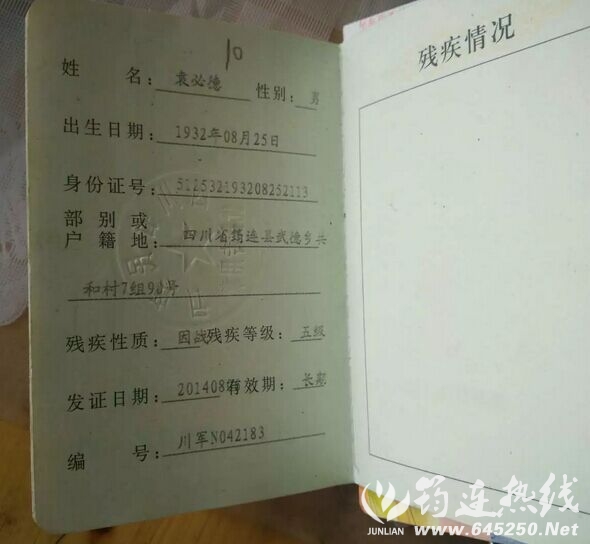 10
姓 名：袁必德 性别：男
出生日期：1932年08月25日
身份证号：512532193208252113
部别或
户籍地：四川省筠连县武德乡共
和村7组90号
残疾性质：因战 残疾等级：五级
发证日期：201408 有效期：长期
编 号：川军N042183
残疾情况
筠连热线
JUNLIAN www.645250.Net